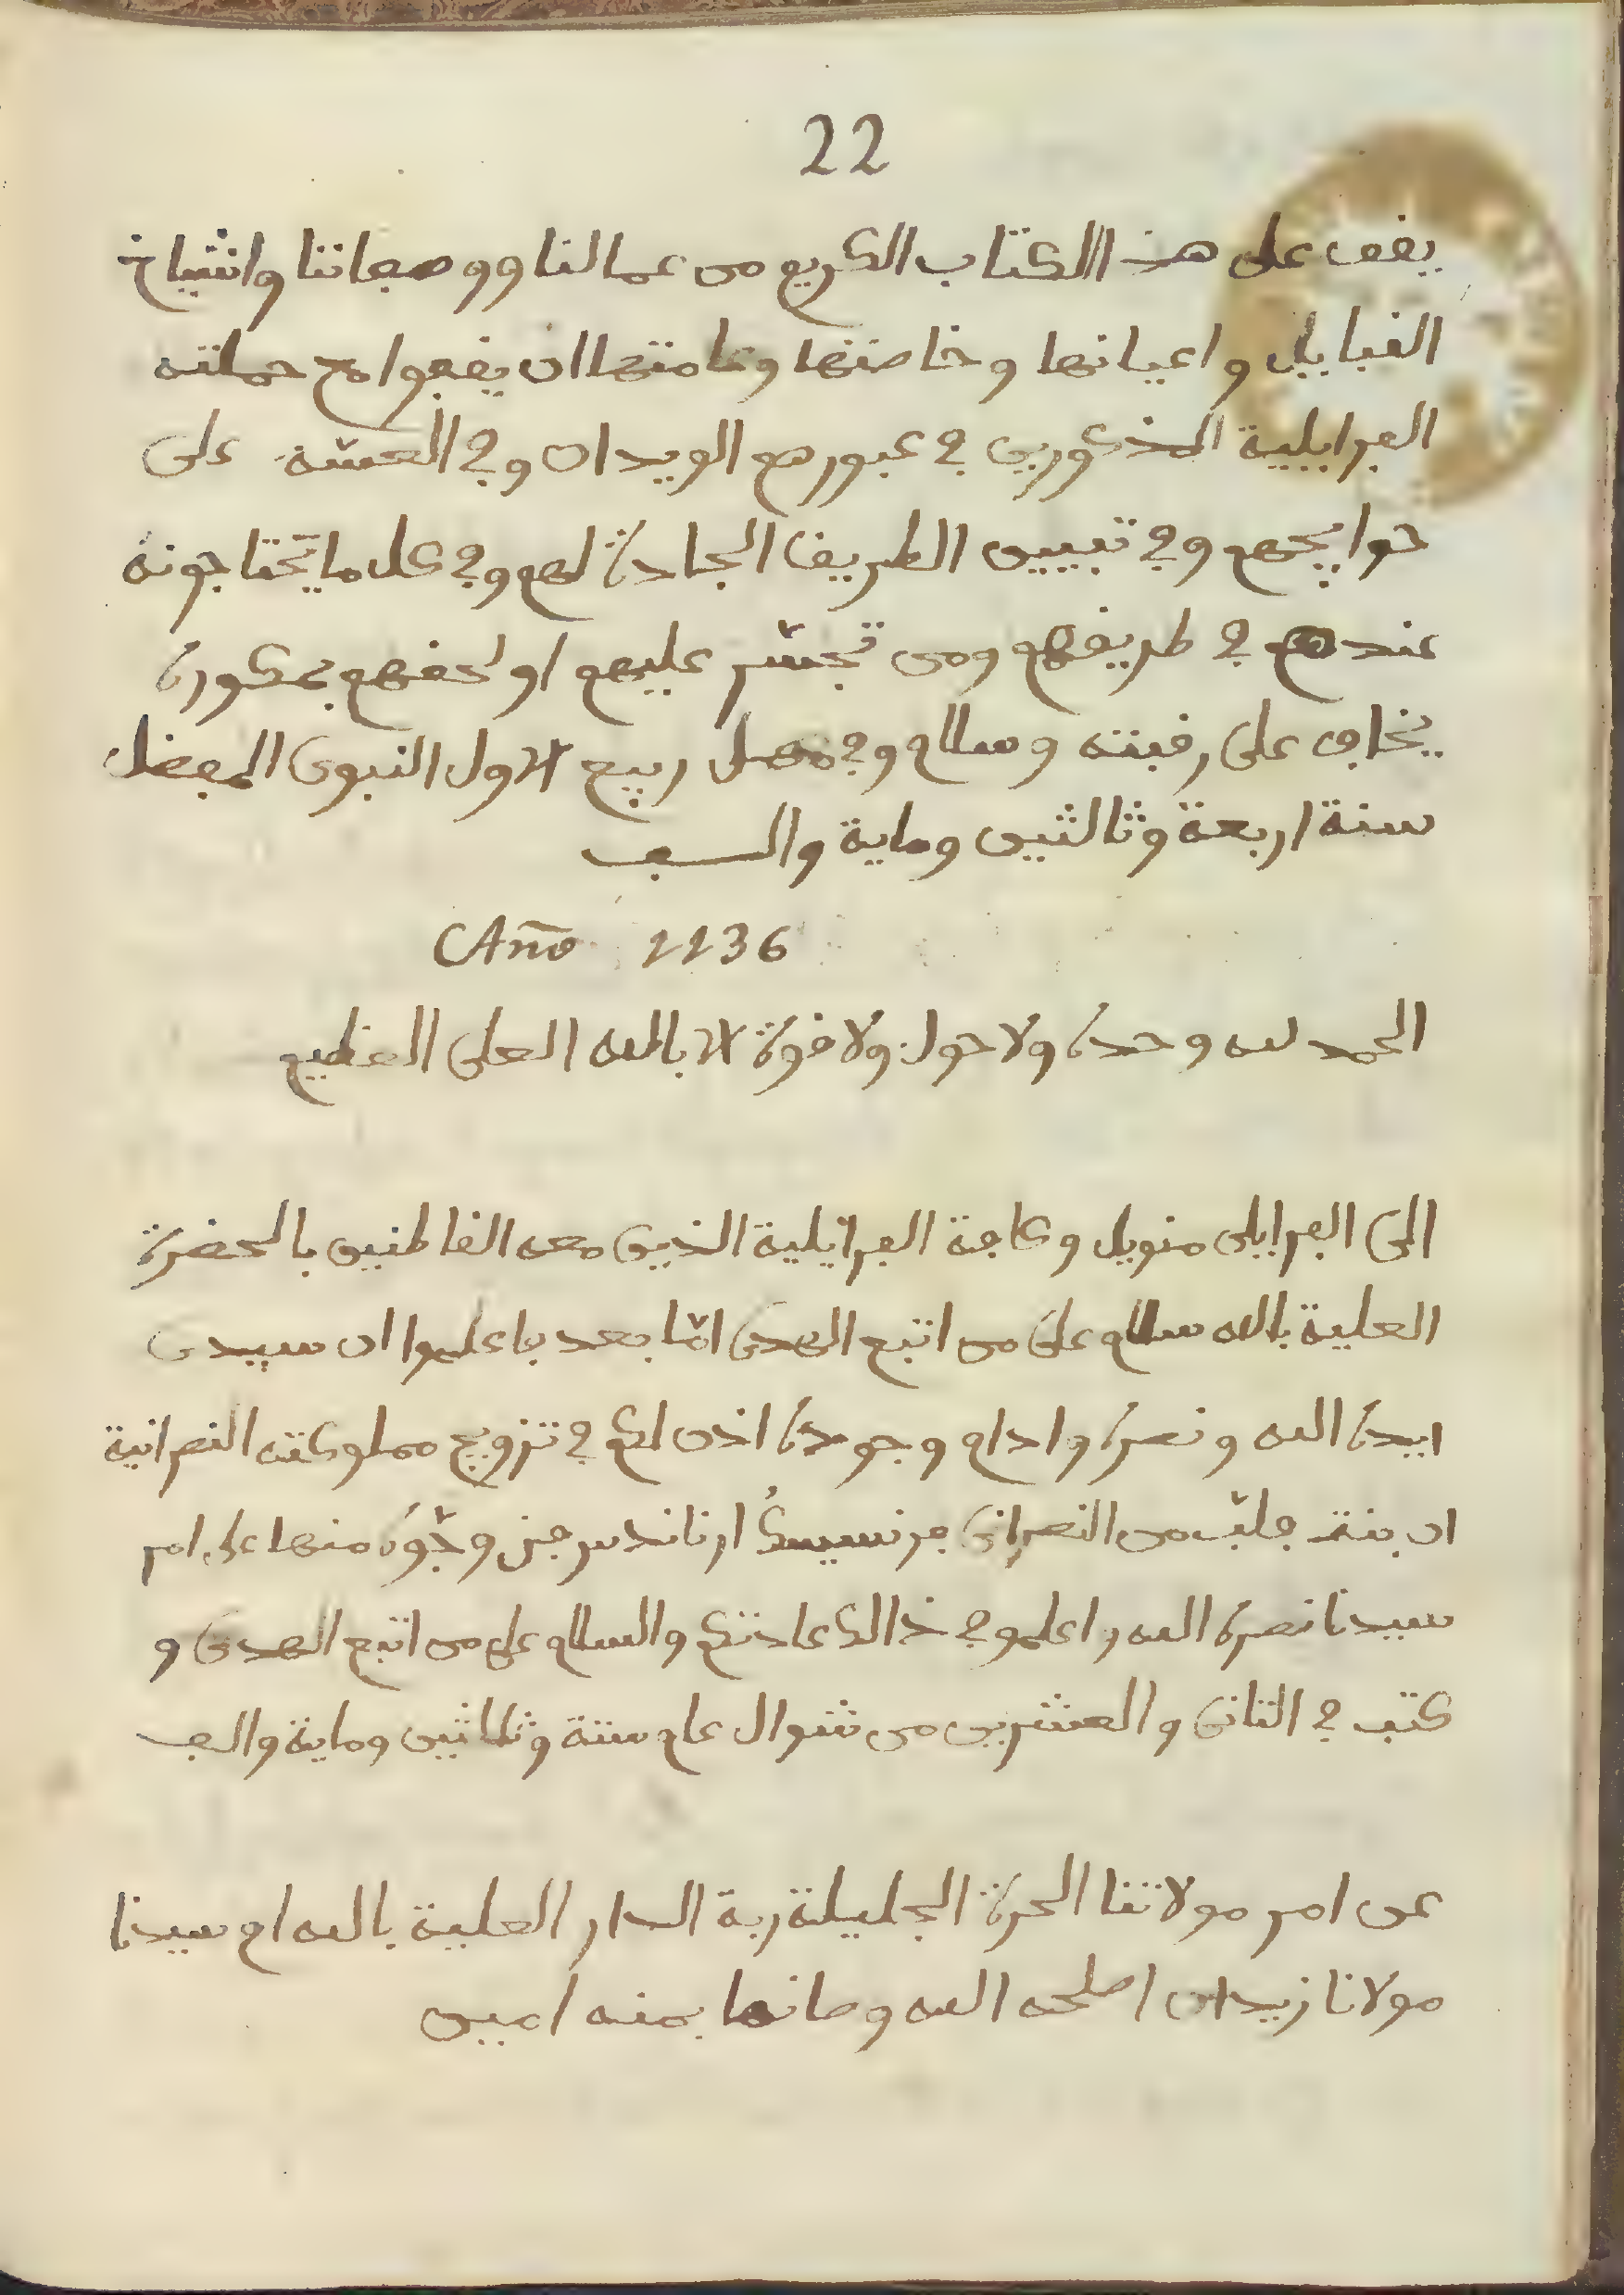 22
يقف على هذا الكتاب الكريم من عمالنا ووصفاتنا واشياخ
القبايل واعيانها وخاصتها وعامتها ان يقفوا مع حملته
الفرايلية المذكورين في عبورهم الويدان وفي العسّة على
حوايجهم وفي تبيين الطريق الجادة لهم وفي كل ما يحتاجونه
عندهم في طريقهم ومن تجسّر عليهم او لحقهم بمكورة
يخاف على رقبته وسلام وفي مهل ربيع الاول النبوى المفضل
سنة اربعة وثالثين وماية والف
Año 1136
الحمد لله وحدة ولا حول ولا قوة الا بالله العلى العظيم
الى الفرايلى منويل وكافة الفرايلية الذين معه القاطنين بالحضرة
العلية بالله سلام على من اتبع الهدى امّا بعد فاعلموا ان سيدى
ايدة الله ونصرة وادام وجودة اذن لكم في تزويج مملوكته النصرانية
ان بنة من النصرانى فرنسيسكُ ارناندس منها على امر
سيدنا نصرة الله واعلمو في ذالك عادتكم والسلام على من اتبع الهدى و
كتب في الثانى والعشرين من شوال عام ستة وثلاثين وماية والف
عن امر مولاتنا الحرة الجليلة ربة الدار العلية بالله ام سيدنا
مولانا زيدان اصلحه الله وصانها بمنه امين